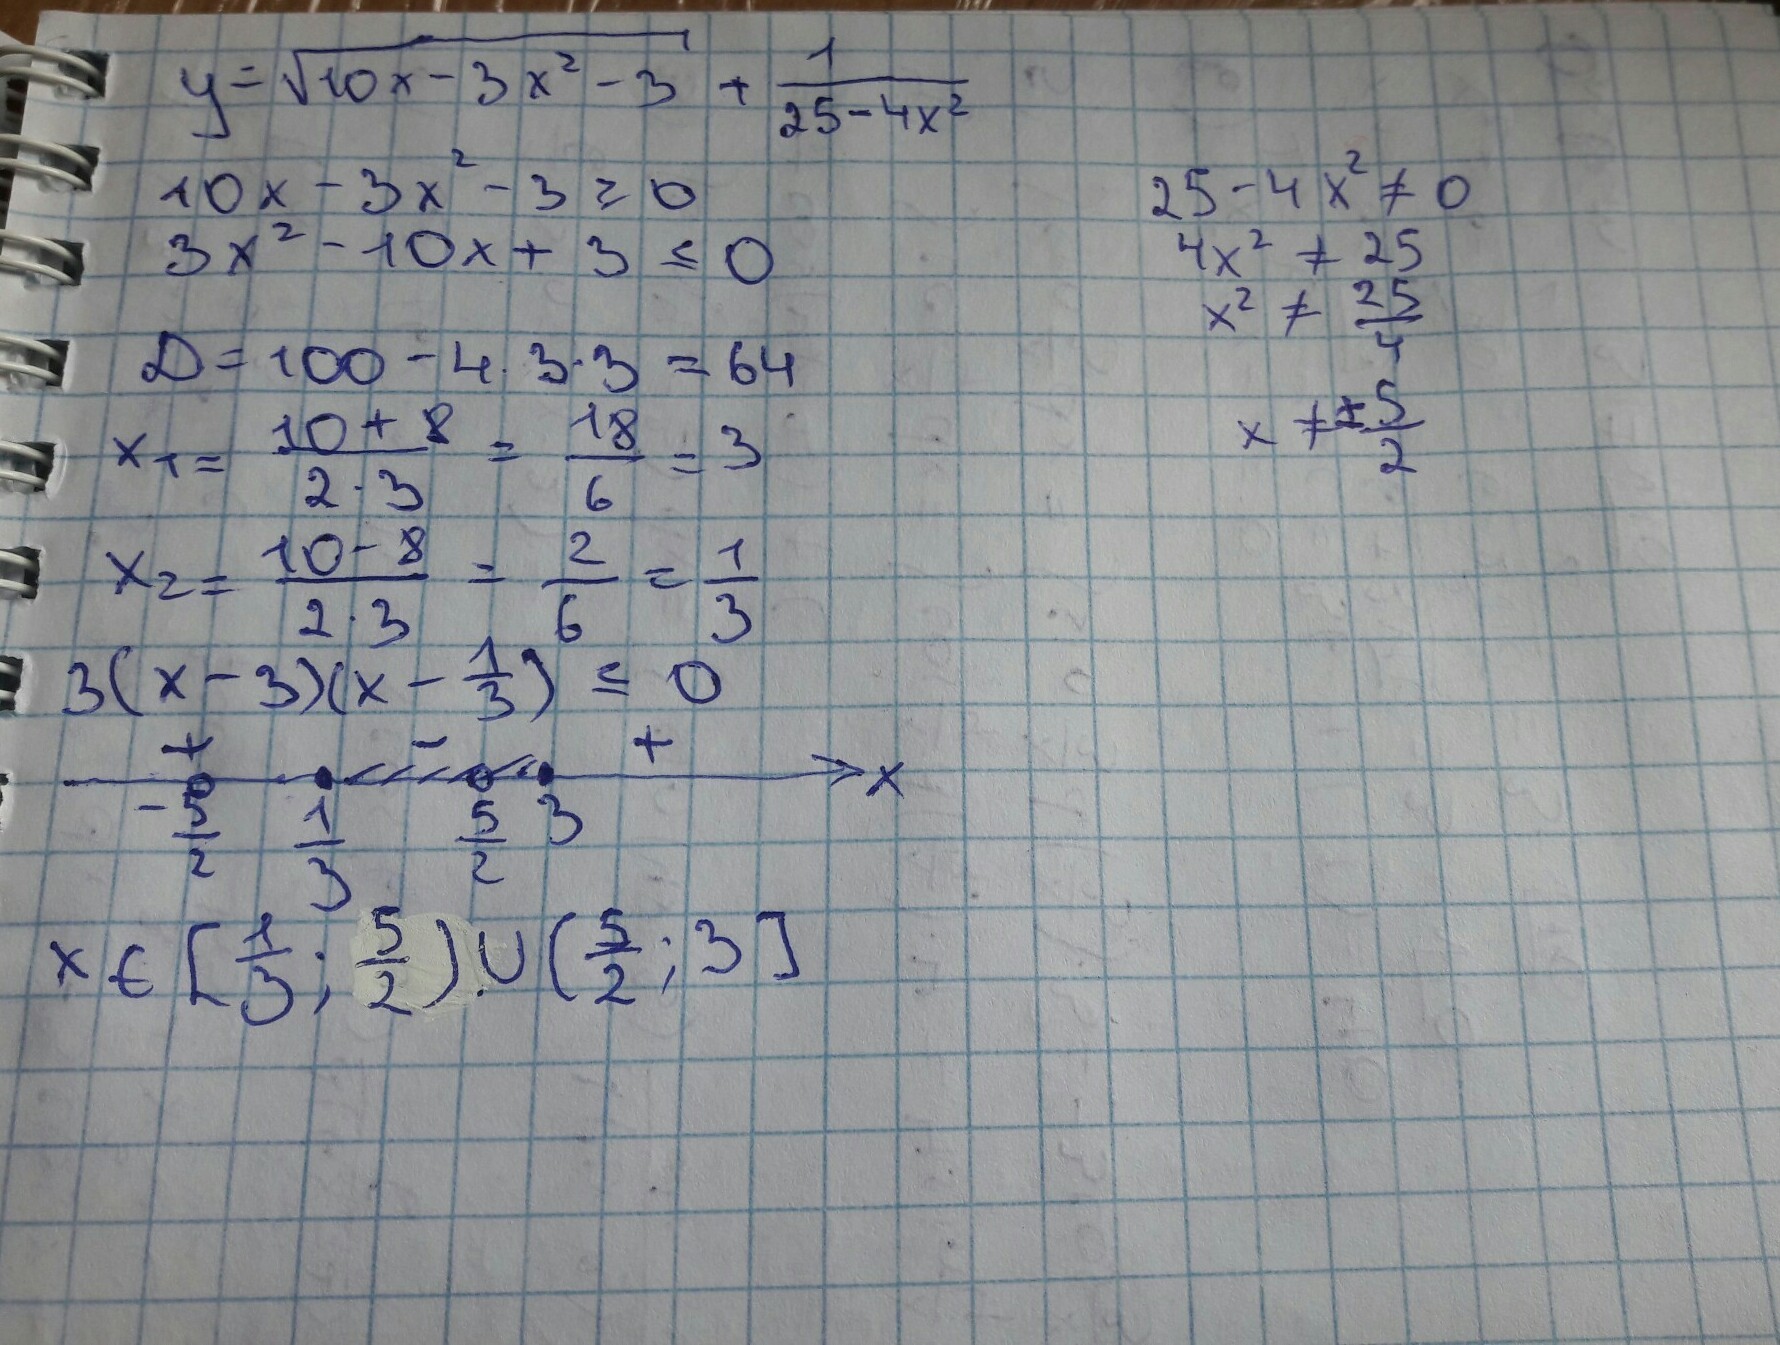 y = √(10x - 3x² - 3) + 1/(25 - 4x²)
10x - 3x² - 3 ≥ 0
3x² - 10x + 3 ≤ 0
D = 100 - 4·3·3 = 64
x₁ = (10 + 8)/(2·3) = 18/6 = 3
x₂ = (10 - 8)/(2·3) = 2/6 = 1/3
3(x - 3)(x - 1/3) ≤ 0
+ - +
x
-5/2 1/3 5/2 3
x ∈ [1/3; 5/2) ∪ (5/2; 3]
25 - 4x² ≠ 0
4x² ≠ 25
x² ≠ 25/4
x ≠ ±5/2